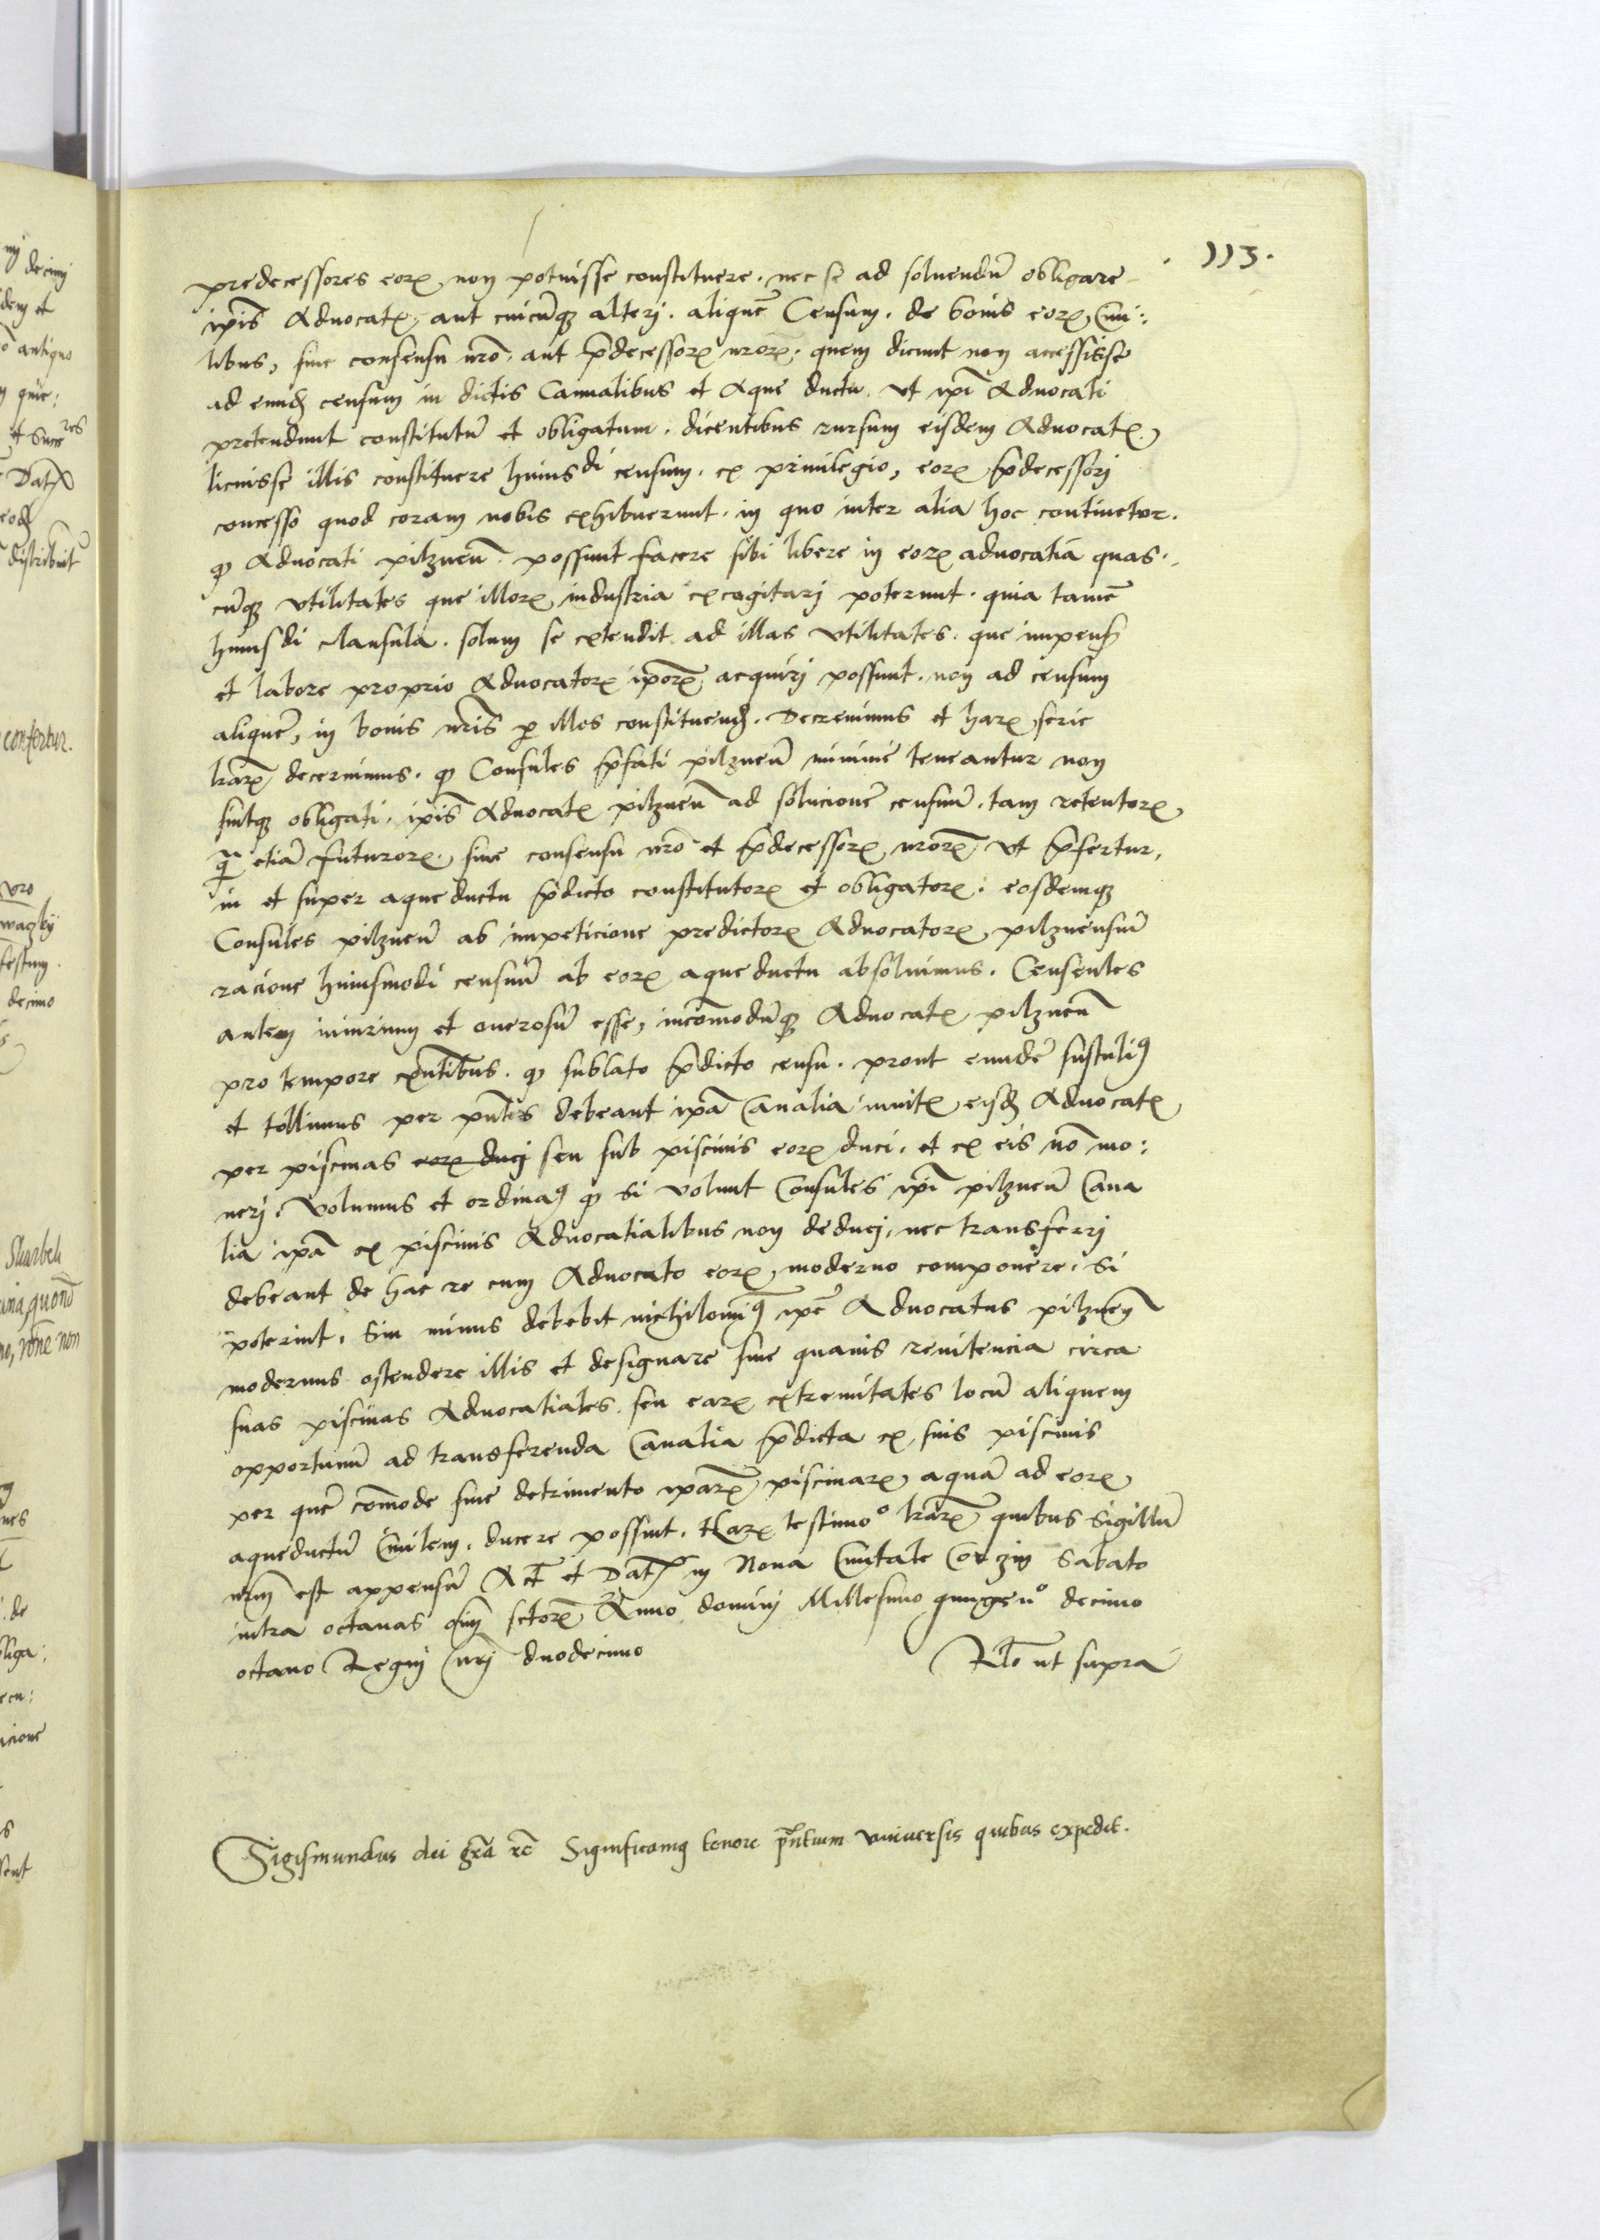 . 113 .
predecessores eorꝝ non potuisse constituere . nec se ad soluendū obligare
ipīs Aduocatꝭ, aut cuicūqꝫ alterj . aliquē Censum . de bonis eorꝝ Ciui:
libus, sine consensu nrō . aut p̄decessorꝝ nrōrꝝ . quem dicunt non accessisse
ad eundꝫ censum in dictis Cannalibus et Aque ductu . vt ipī Aduocati
pretendunt constitutū et obligatum . dicentibus rursum eisdem Aduocatꝭ
licuisse illis constituere huiusdi censum . ex priuilegio, eorꝝ p̄decessorj
concesso quod coram nobis exhibuerunt . in quo inter alia hoc continetur .
ꝙ Aduocati pilzneñ possunt facere sibi libere in eorꝝ aduocatia quas .
cūqꝫ vtilitates que illorꝝ industria excogitarj poterunt . quia tamē
huiusdi clausula . solum se extendit ad illas vtilitates . que impensꝭ
et labore proprio Aduocatorꝝ ipōrꝝ acquirj possunt . non ad censum
aliquē, in bonis nrīs ꝑ illos constituendꝫ . Decreuimus et harꝝ serie
lrārꝝ decernimus . ꝙ Consules p̄fati pilzneñ minime teneantur non
sintqꝫ obligati . ipīs Aduocatꝭ pilzneñ ad solucionē censuū . tam retentorꝝ
q̄ etiā futurorꝝ . sine consensu nrō et p̄decessorꝝ nrōrꝝ vt p̄fertur,
in et super aque ductu p̄dicto constitutorꝝ et obligatorꝝ . eosdemqꝫ
Consules pilzneñ ab impeticione predictorꝝ Aduocatorꝝ pilznensiū
racione huiusmodi censuū ab eorꝝ aque ductu absoluimus . Censentes
autem iniurium et onerosū esse, incōmodūqꝫ Aduocatꝭ pilzneñ
pro tempore exn̄tibus . ꝙ sublato p̄dicto censu . prout eundē sustuliꝰ
et tollimus per pn̄tes debeant ipā Canalia inuitꝭ eisdꝫ Aduocatꝭ
per piscinas eorꝝ ducj seu sub piscinis eorꝝ duci . et ex eis nō mo:
uerj . Volumus et ordinaꝰ ꝙ si volunt Consules ipī pilzneñ Cana
lia ipā ex piscinis Aduocatialibus non deducj, nec transferrj
debeant de hac re cum Aduocato eorꝝ moderno componere, si
poterint . Sin minus debebit nichilominꝰ ipē Aduocatus pilzneñ
modernus ostendere illis et designare sine quauis renitencia circa
suas piscinas Aduocatiales . seu earꝝ extremitates locū aliquem
opportunū ad transferenda Canalia p̄dicta ex suis piscinis
per quē cōmode sine detrimento ipārꝝ piscinarꝝ aquā ad eorꝝ
aqueductū Ciuilem . ducere possint . Harꝝ testimoº lrārꝝ quibus Sigillū
nrm̄ est appensū Act̄ et Datꝭ in Noua Ciuitate Corzin Sabato
intra octauas oīm sctōrꝝ Anno dominj Millesimo quingenº decimo
octauo Regnj nrj̄ duodecimo Rlō ut supra
Sigismundus dei grā rē Significamꝰ tenore pn̄tium vniuersis quibus expedit .